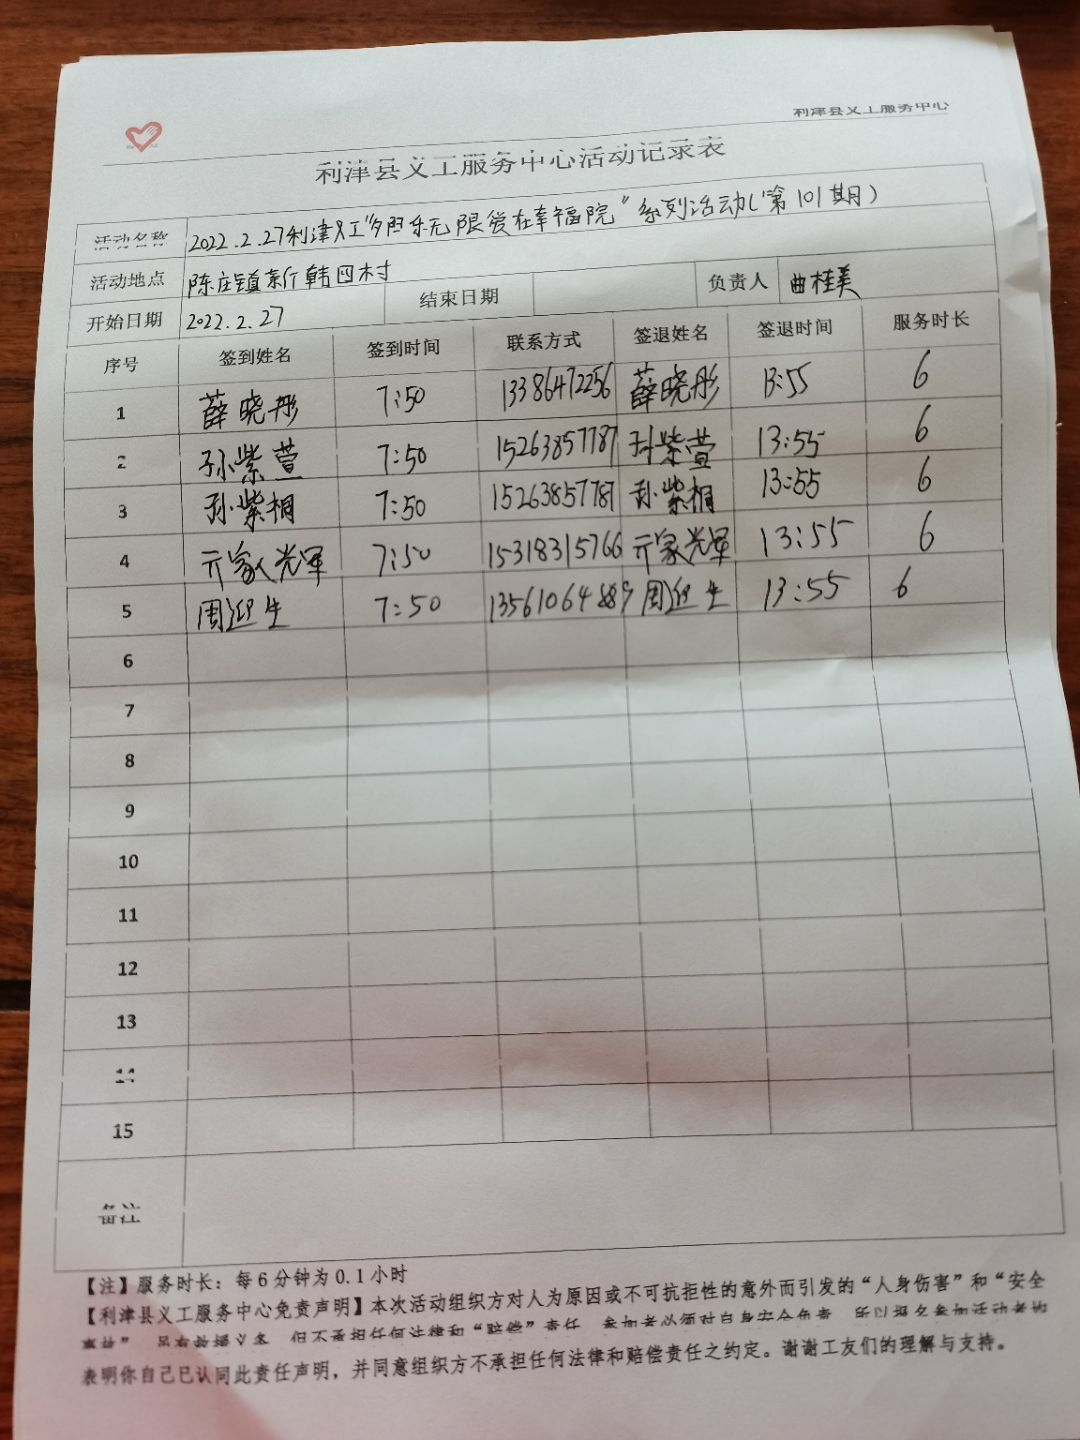 利津县义工服务中心
利津县义工服务中心活动记录表
活动名称 2022.2.27利津义工"夕阳乐无限爱在幸福院"系列活动(第101期)
活动地点 陈庄镇新韩四村
开始日期 2022.2.27 结束日期 负责人 曲桂美
序号 签到姓名 签到时间 联系方式 签退姓名 签退时间 服务时长
1 薛晓彤 7:50 13386472256 薛晓彤 13:55 6
2 孙紫萱 7:50 15263857787 孙紫萱 13:55 6
3 孙紫桐 7:50 15263857787 孙紫桐 13:55 6
4 7:50 15318315766 13:55 6
5 周迎生 7:50 周迎生 13:55 6
6
7
8
9
10
11
12
13
14
15
备注
【注】服务时长：每6分钟为0.1小时
【利津县义工服务中心免责声明】本次活动组织方对人为原因或不可抗拒性的意外而引发的“人身伤害”和“安全
事故”，虽有救援义务，但不承担任何法律和“赔偿”责任。参加者必须对自身安全负责，所以报名参加活动者均
表明你自己已认同此责任声明，并同意组织方不承担任何法律和赔偿责任之约定。谢谢工友们的理解与支持。